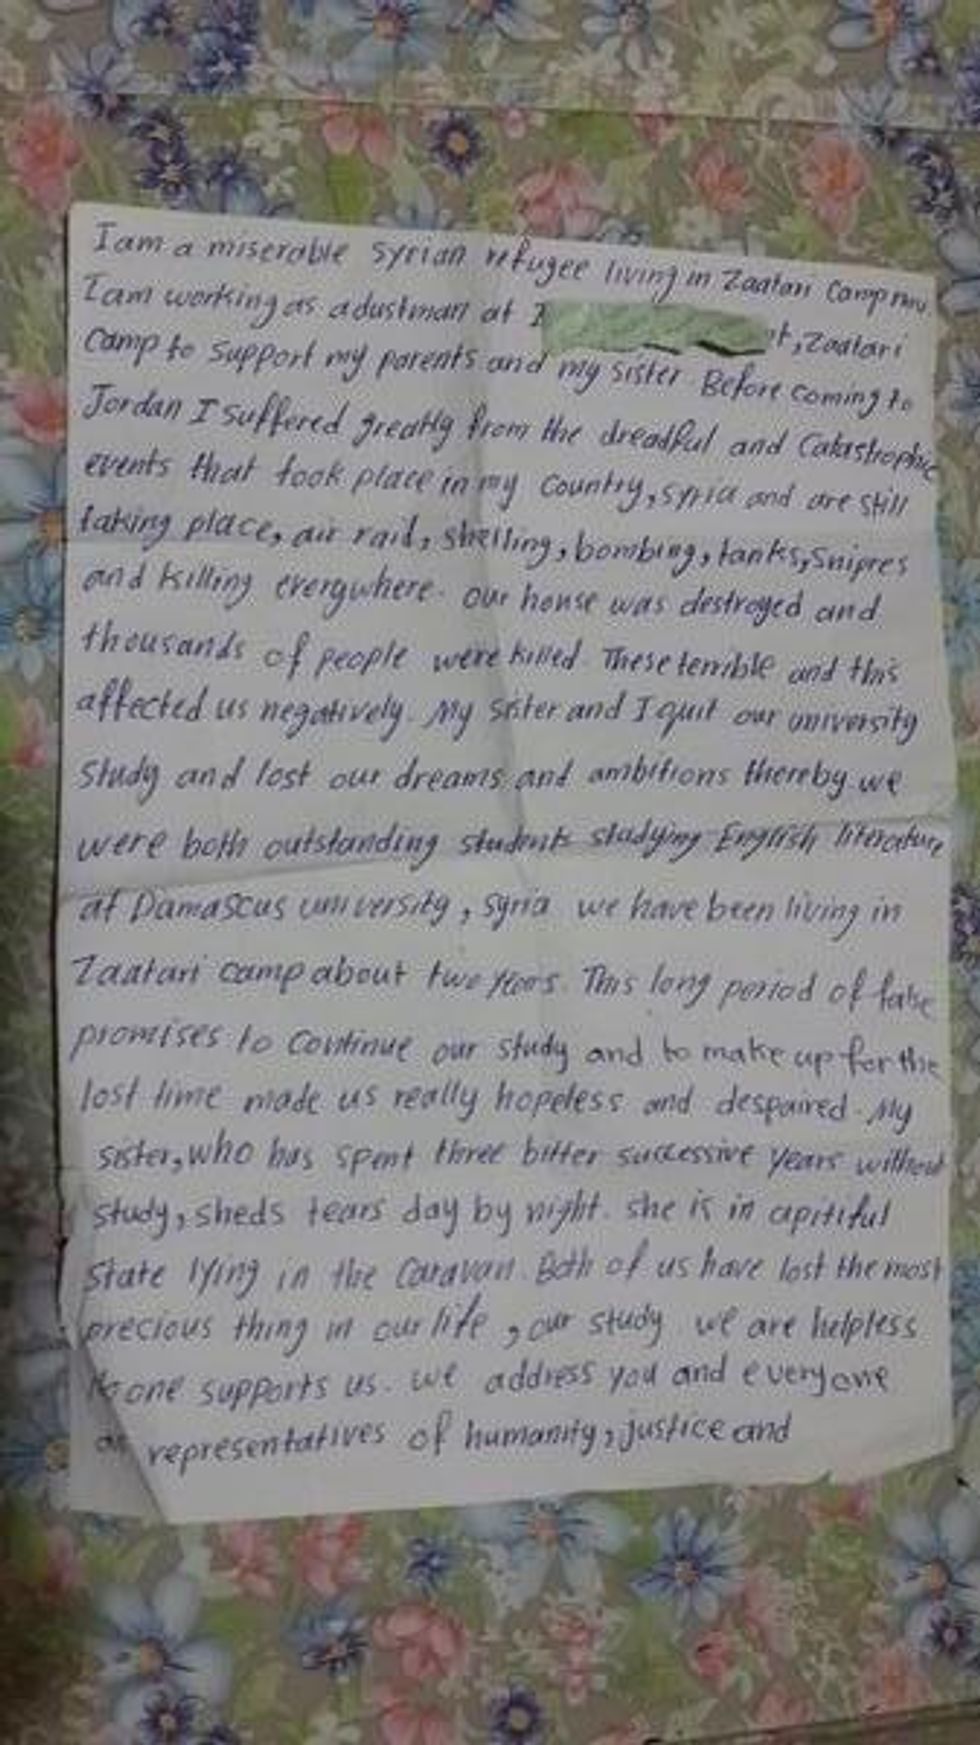 I am a miserable Syrian refugee living in Zaatari Camp now
I am working as adustman at I t, Zaatari
Camp to Support my parents and my sister. Before coming to
Jordan I suffered greatly from the dreadful and Catastrophic
events that took place in my Country, Syria and are still
taking place, air raid, shelling, bombing, tanks, Snipres
and killing everywhere. our house was destroyed and
thousands of people were killed. These terrible and this
affected us negatively. My sister and I quit our university
Study and lost our dreams and ambitions thereby we
were both outstanding students studying English literature
at Damascus university, Syria we have been living in
Zaatari camp about two years. This long period of false
promises to Continue our study and to make up for the
lost time made us really hopeless and despaired. My
sister, who has spent three bitter successive years without
study, sheds tears day by night. she is in apitiful
State lying in the Caravan. Both of us have lost the most
precious thing in our life, our study we are helpless
No one supports us. we address you and everyone
as representatives of humanity, justice and